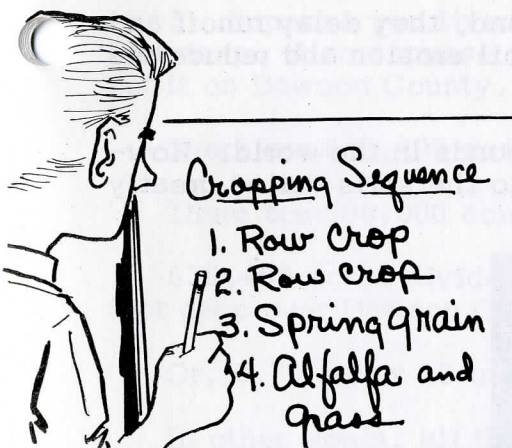 Cropping Sequence
1. Row crop
2 Row crop
3. Spring grain
4. Alfalfa and
grass